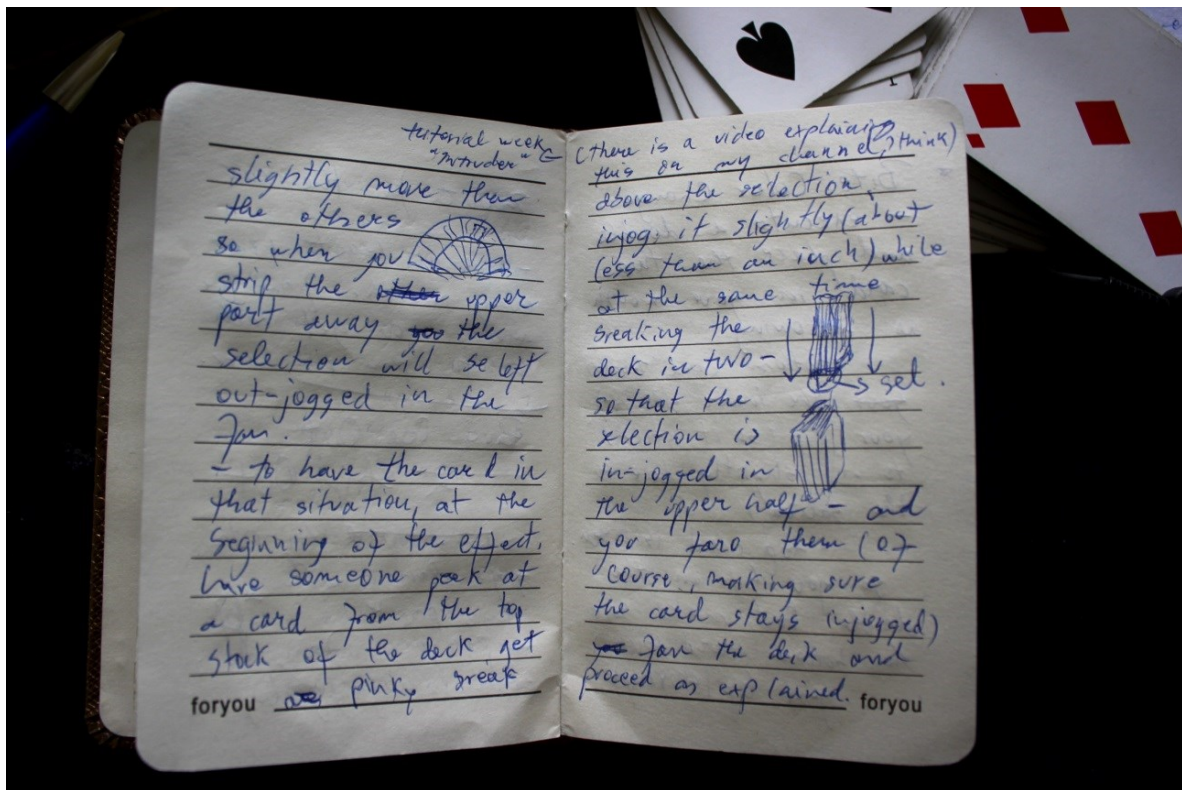 tutorial week
"Intruder"
slightly more then
the others
so when you
strip the upper
part away the
selection will be left
out-jogged in the
fan.
- to have the card in
that situation, at the
beginning of the effect,
have someone peek at
a card from the top
stock of the deck get
pinky break
foryou
(there is a video explaining
this on my channel, I think)
above the selection,
injog it slightly (about
less than an inch) while
at the same time
breaking the
deck in two -
→ sel.
so that the
selection is
in-jogged in
the upper half - and
you faro them (of
course, making sure
the card stays injogged)
fan the deck and
proceed as explained.
foryou